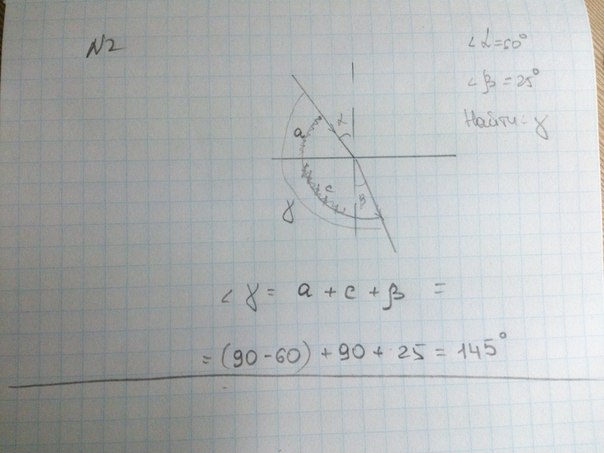 N2
∠α=60°
∠β=25°
Найти: γ
α
a
c
β
γ
∠γ = a + c + β =
= (90-60) + 90 + 25 = 145°